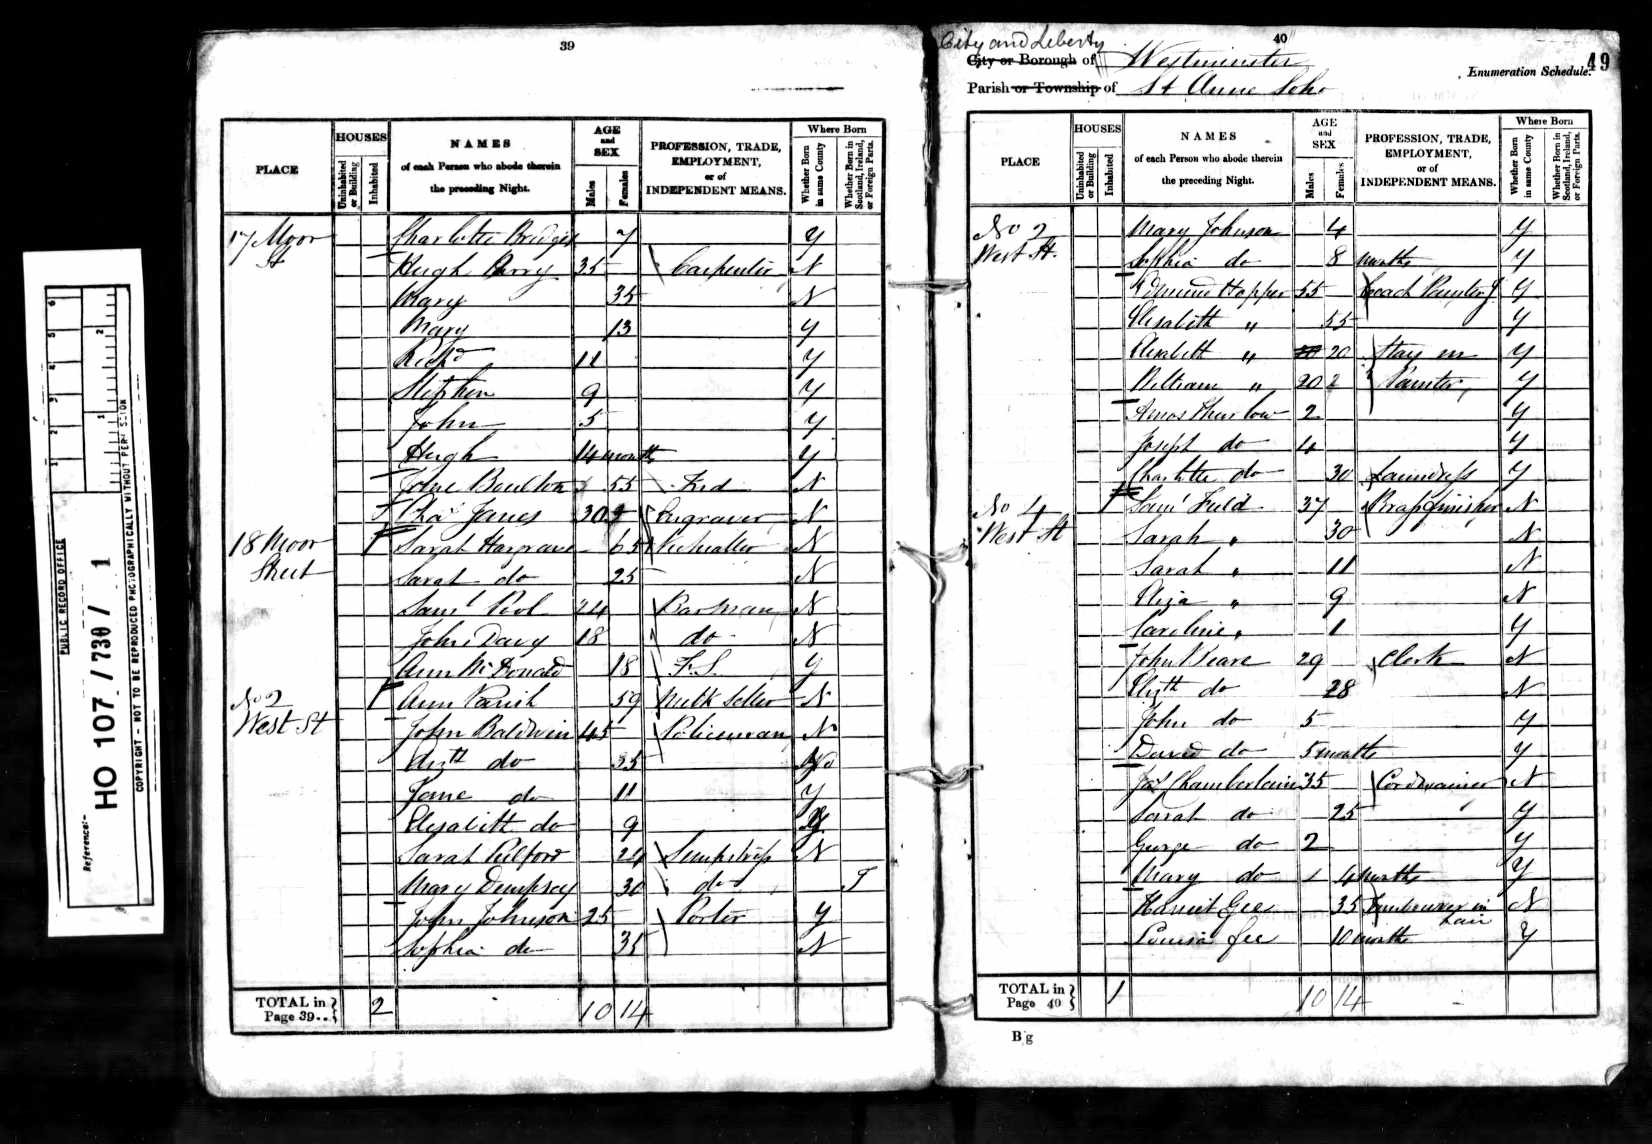 39
PLACE
HOUSES
Uninhabited or Building
Inhabited
NAMES
of each Person who abode therein the preceding Night.
AGE and SEX
Males
Females
PROFESSION, TRADE, EMPLOYMENT, or of INDEPENDENT MEANS.
Where Born
Whether Born in same County
Whether Born in Scotland, Ireland, or Foreign Parts.
17 Moor St Charlotte Bridges 7 Y
Hugh Parry 35 Carpenter N
Mary 35 N
Mary 13 Y
Richd 11 Y
Stephen 9 Y
John 5 Y
Hugh 14 months Y
Jane Boulton 55 Ind N
Chas Janes 30 Engraver N
18 Moor Street 1 Sarah Hargrave 65 Victualler N
Sarah do 25 N
Saml Pool 24 Barman N
John Davy 18 do N
Ann McDonald 18 F.S. Y
No 2 West St 1 Ann Parish 59 Milk Seller N
John Baldwin 45 Policeman N
do 35 No
Jane do 11 Y
Elisabeth do 9 Y
Sarah Pulford 24 Sempstress N
Mary Dempsey 30 do
John Johnson 25 Porter Y
Sophia do 35 N
TOTAL in Page 39... 2 10 14
40
49
City and Liberty
City or Borough of Westminster
Enumeration Schedule.
Parish or Township of St Anne Soho
PLACE
HOUSES
Uninhabited or Building
Inhabited
NAMES
of each Person who abode therein the preceding Night.
AGE and SEX
Males
Females
PROFESSION, TRADE, EMPLOYMENT, or of INDEPENDENT MEANS.
Where Born
Whether Born in same County
Whether Born in Scotland, Ireland, or Foreign Parts.
No 2 West St. Mary Johnson 4 Y
Sophia do 8 months Y
Edmund Hopper 55 Coach Painter J Y
Elisabeth " 55 Y
Elisabeth " 20 Stay m Y
William " 20 Painter Y
Amos Thurlow 2 Y
Joseph do 4 Y
Charlotte do 30 Laundress Y
No 4 West St 1 Saml Field 37 Brassfinisher N
Sarah " 30 N
Sarah " 11 N
Eliza " 9 N
Caroline " 1 Y
John 29 Clerk N
Elizth do 28 N
John do 5 Y
David do 5 months Y
Jas Chamberlain 35 Cordwainer N
Sarah do 25 Y
George do 2 Y
Mary do 4 months Y
Harriet Gee 35 in hair N
Louisa Gee 10 months Y
TOTAL in Page 40 1 10 14
B g
PUBLIC RECORD OFFICE
Reference:-
HO 107 / 739 / 1
COPYRIGHT - NOT TO BE REPRODUCED PHOTOGRAPHICALLY WITHOUT PERMISSION